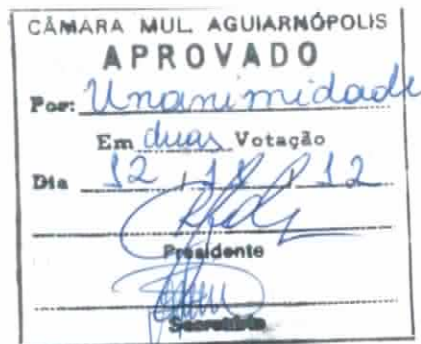 CÂMARA MUL. AGUIARNÓPOLIS
APROVADO
Por: Unanimidade
Em duas Votação
Dia 12 / / 12
Presidente
Secretário